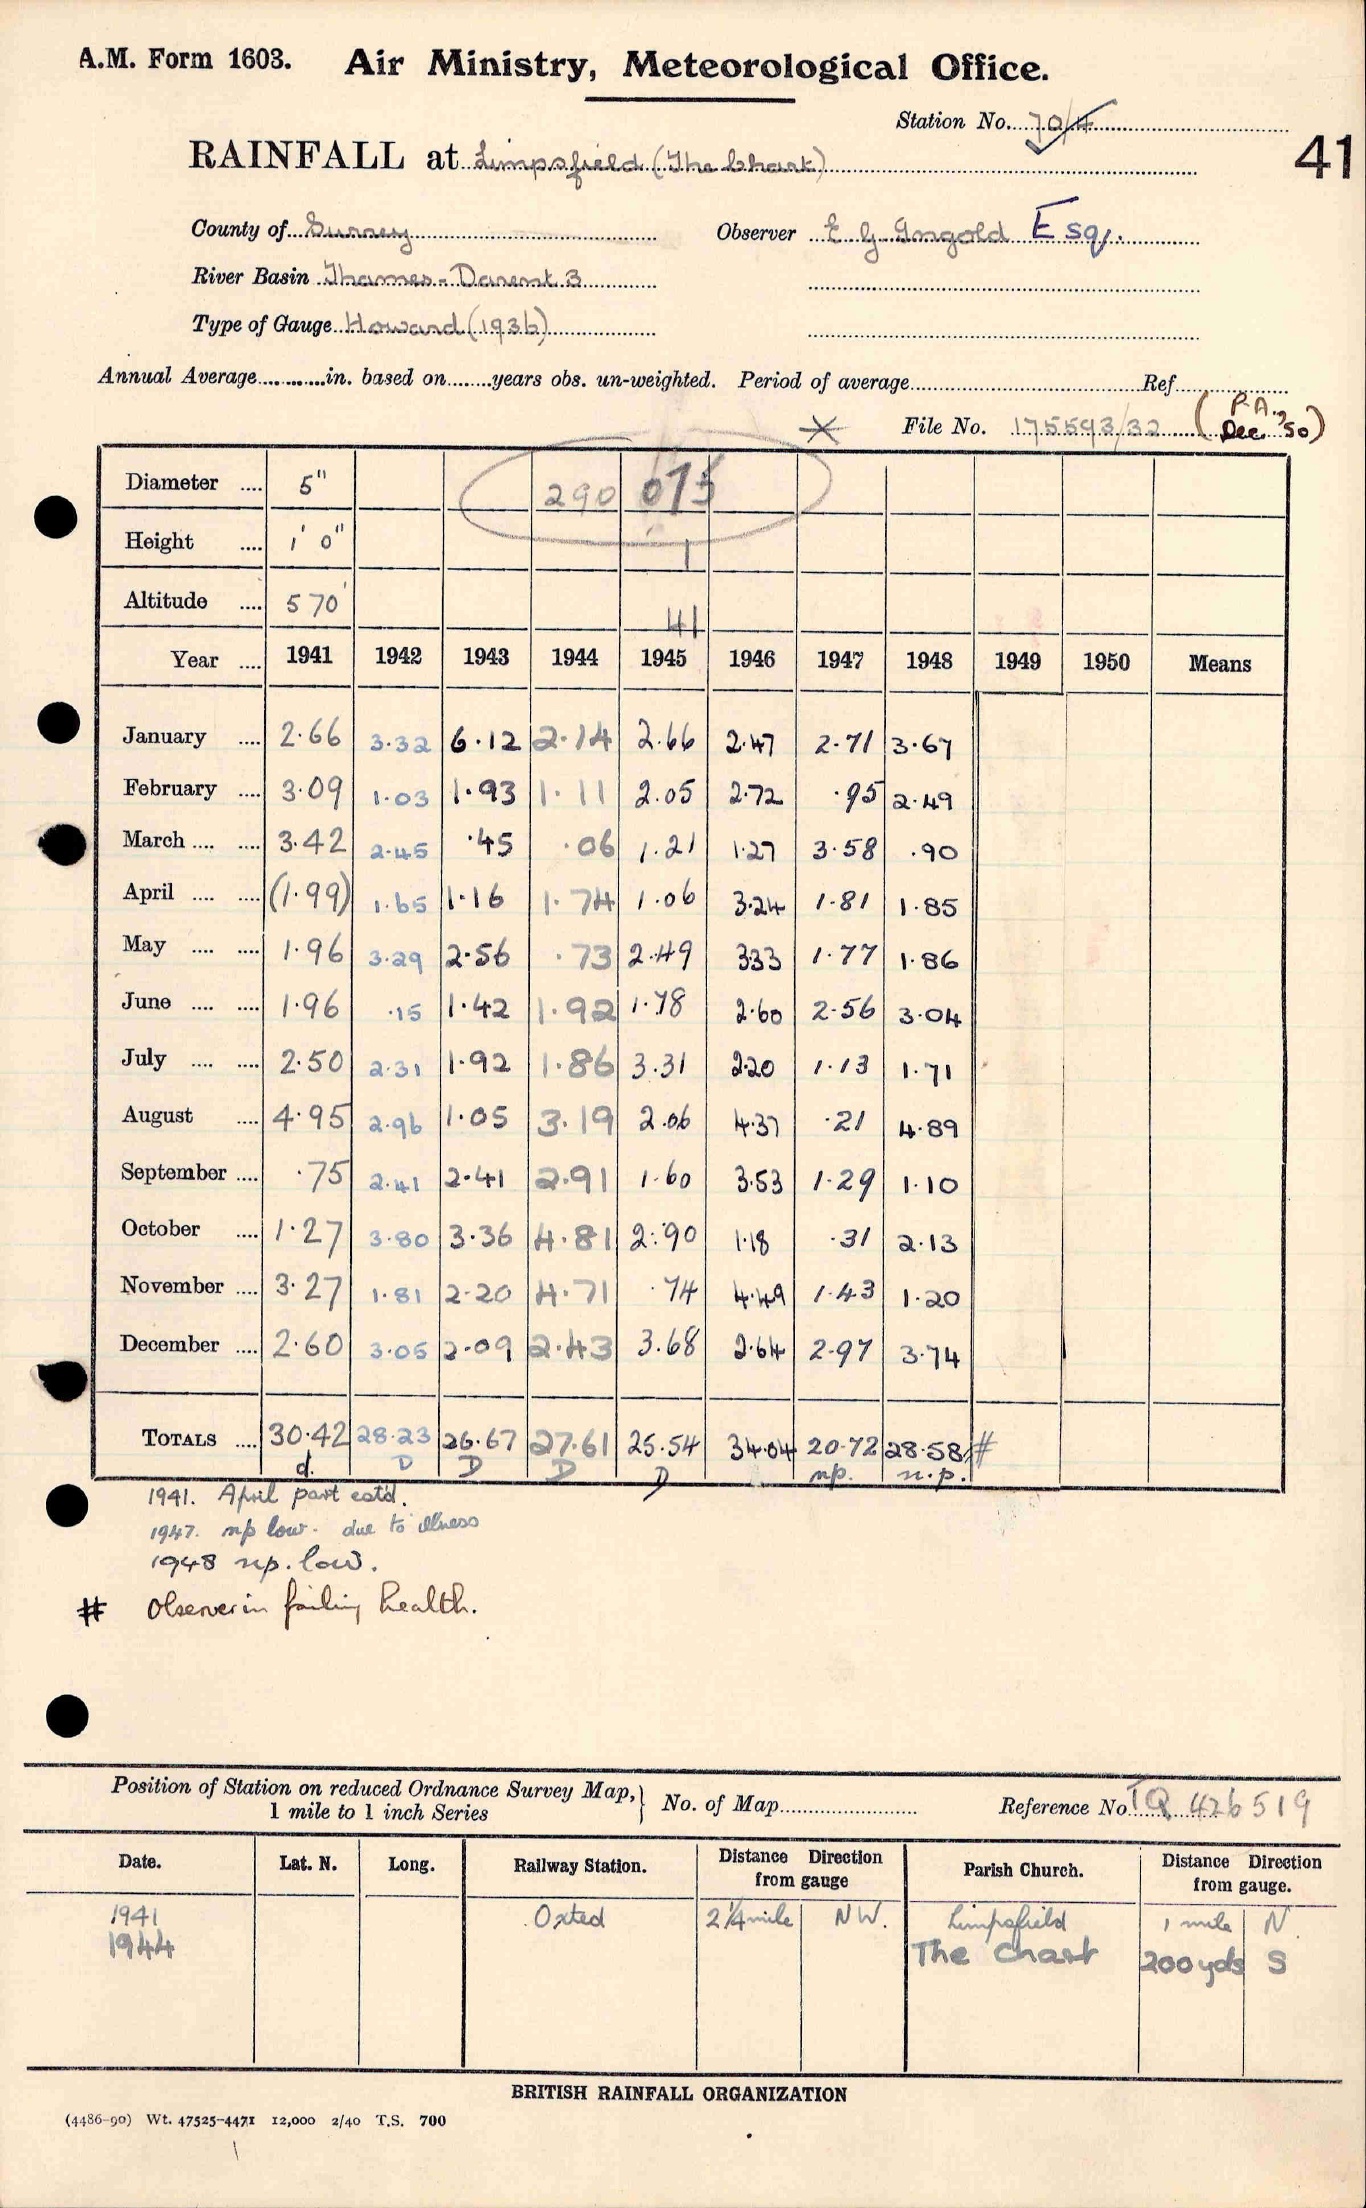 A.M. Form 1603. Air Ministry, Meteorological Office.
Station No. 70/4
41
RAINFALL at Limpsfield (The Chart)
County of Surrey Observer E G Ingold Esq.
River Basin Thames - Darent 3
Type of Gauge Howard (1936)
Annual Average............in. based on........years obs. un-weighted. Period of average........................Ref.
File No. 175593/32 (P.A., Dec '50)
Diameter .... 5" 290 075
Height .... 1' 0" 1
Altitude .... 570' 41
Year .... 1941 1942 1943 1944 1945 1946 1947 1948 1949 1950 Means
January .... 2.66 3.32 6.12 2.14 2.66 2.47 2.71 3.67
February .... 3.09 1.03 1.93 1.11 2.05 2.72 .95 2.49
March .... .... 3.42 2.45 .45 .06 1.21 1.27 3.58 .90
April .... .... (1.99) 1.65 1.16 1.74 1.06 3.24 1.81 1.85
May .... .... 1.96 3.29 2.56 .73 2.49 333 1.77 1.86
June .... .... 1.96 .15 1.42 1.92 1.78 2.60 2.56 3.04
July .... .... 2.50 2.31 1.92 1.86 3.31 2.20 1.13 1.71
August .... 4.95 2.96 1.05 3.19 2.06 4.37 .21 4.89
September .... .75 2.41 2.41 2.91 1.60 3.53 1.29 1.10
October .... 1.27 3.80 3.36 4.81 2.90 1.18 .31 2.13
November .... 3.27 1.81 2.20 4.71 .74 4.49 1.43 1.20
December .... 2.60 3.05 2.09 2.43 3.68 2.64 2.97 3.74
TOTALS .... 30.42 28.23 26.67 27.61 25.54 34.04 20.72 28.58 #
d. D D D D np. n.p.
1941. April part estd.
1947. np low. due to illness
1948 np. low.
# Observer in failing health.
Position of Station on reduced Ordnance Survey Map, 1 mile to 1 inch Series } No. of Map........................ Reference No. TQ 426519
Date. Lat. N. Long. Railway Station. Distance Direction from gauge Parish Church. Distance Direction from gauge.
1941 Oxted 2 1/4 mile NW. Limpsfield 1 mile N.
1944 The Chart 200 yds S
BRITISH RAINFALL ORGANIZATION
(4486-90) Wt. 47525-4471 12,000 2/40 T.S. 700